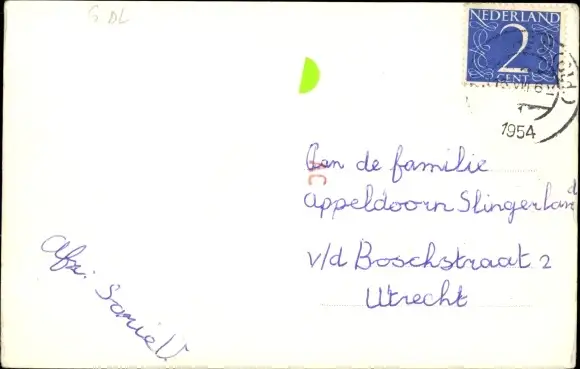 G DL
NEDERLAND
2
CENT
1954
Aan de familie
Appeldoorn Slingerland
v/d Boschstraat 2
Utrecht
Afz.